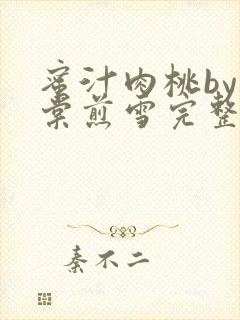 蜜汁肉桃by
棠煎雪完整
秦不二